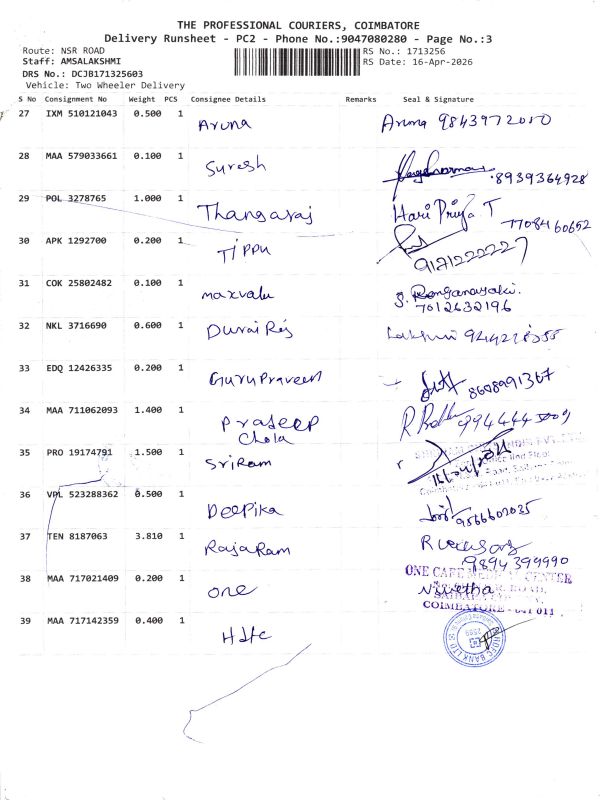 THE PROFESSIONAL COURIERS, COIMBATORE
Delivery Runsheet - PC2 - Phone No.:9047080280 - Page No.:3
Route: NSR ROAD
RS No.: 1713256
Staff: AMSALAKSHMI
RS Date: 16-Apr-2026
DRS No.: DCJB171325603
Vehicle: Two Wheeler Delivery
S No Consignment No Weight PCS Consignee Details Remarks Seal & Signature
27 IXM 510121043 0.500 1 Aruna Aruna 9843972050
28 MAA 579033661 0.100 1 Suresh 8939364928
29 POL 3278765 1.000 1 Thangaraj Hari Priya T 7708460652
30 APK 1292700 0.200 1 Tippu 9171222227
31 COK 25802482 0.100 1 maxvalu S. Ranganayaki. 7012632196
32 NKL 3716690 0.600 1 Durai Raj Lakshmi
33 EDQ 12426335 0.200 1 Guru Praveen 8608991367
34 MAA 711062093 1.400 1 Pradeep Chola
35 PRO 19174791 1.500 1 SriRam
36 VPL 523288362 0.500 1 Deepika 9566602035
37 TEN 8187063 3.810 1 RajaRam 9894399990
38 MAA 717021409 0.200 1 one Nivetha
ONE CARE CENTER
ROAD,
COIMBATORE - 641 011
39 MAA 717142359 0.400 1 Hdfc
HDFC BANK LTD